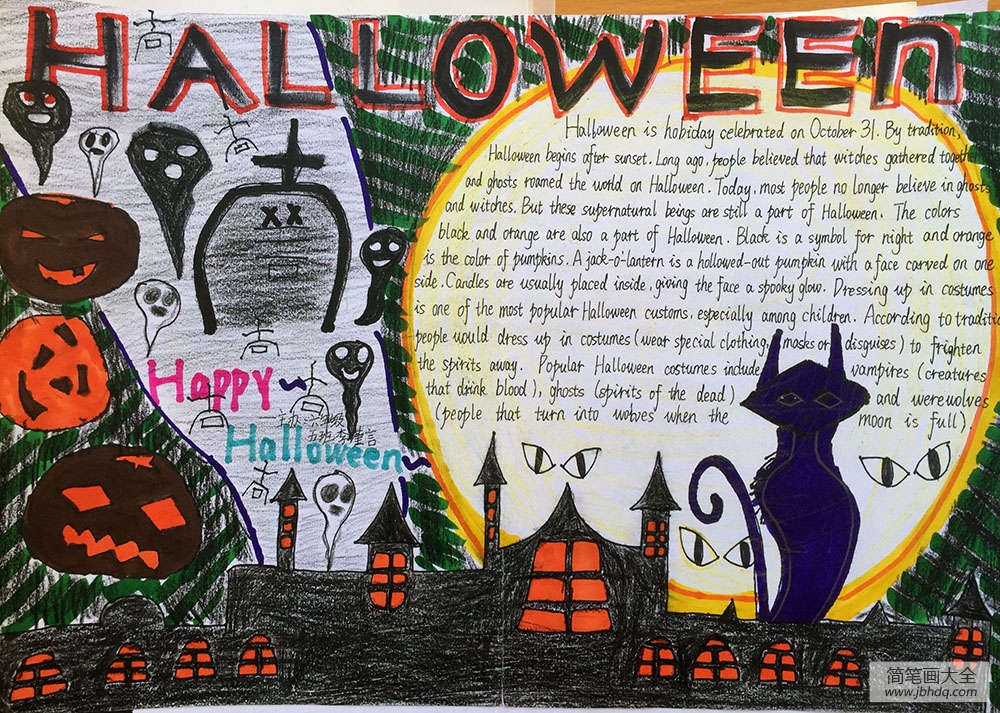 HALLOWEEN
Halloween is hobiday celebrated on October 31. By tradition,
Halloween begins after sunset. Long ago, people believed that witches gathered together
and ghosts roamed the world on Halloween. Today, most people no longer believe in ghosts
and witches. But these supernatural beings are still a part of Halloween. The colors
black and orange are also a part of Halloween. Black is a symbol for night and orange
is the color of pumpkins. A jack-o'-lantern is a hollowed-out pumpkin with a face carved on one
side. Candles are usually placed inside, giving the face a spooky glow. Dressing up in costumes
is one of the most popular Halloween customs, especially among children. According to traditio
people would dress up in costumes (wear special clothing, masks or disguises) to frighten
the spirits away. Popular Halloween costumes include vampires (creatures
that drink blood), ghosts (spirits of the dead) and werewolves
(people that turn into wolves when the moon is full).
Happy~
Halloween~
五班
简笔画大全
www.jbhdq.com